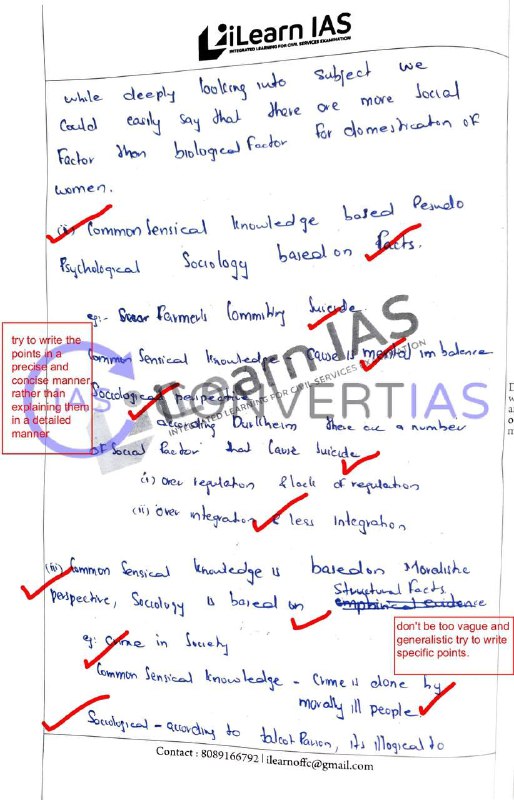 iLearn IAS
INTEGRATED LEARNING FOR CIVIL SERVICES EXAMINATION
while deeply looking into subject we
Could easily say that there are more Social
Factor than biological Factor for domestication of
women.
(ii) Common Sensical knowledge based Pesudo
Psychological Sociology based on Facts.
eg:- Farmers Commiting Suicide
Common Sensical knowledge - Cause is mental imbalence
try to write the
points in a
precise and
concise manner
rather than
explaining them
in a detailed
manner
Sociological perspective
according Durkheim there are a number
of Social Factor that Cause Suicide
(i) over regulation & lack of regulation
(ii) over integration & less integration
iLearn IAS
INTEGRATED LEARNING FOR CIVIL SERVICES EXAMINATION
IAS CONVERTIAS
(iii) Common Sensical knowledge is based on Moralistic
Structural Facts
perspective, Sociology is based on emphirical evidence
don't be too vague and
generalistic try to write
specific points.
eg: Crime in Society
Common Sensical knowledge - Crime is done by
morally ill people.
Sociological - according to talcot Parson, its illogical to
Contact : 8089166792 | ilearnoffc@gmail.com